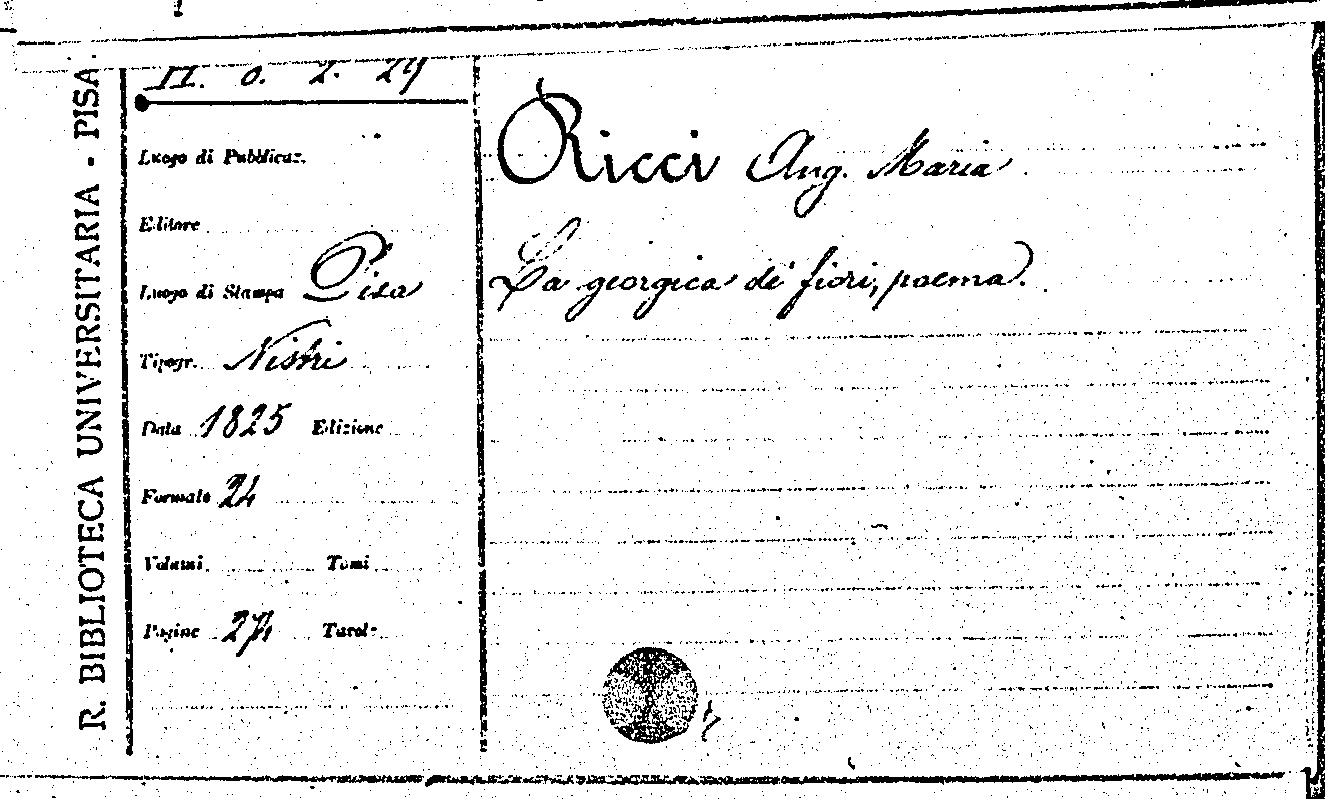 R. BIBLIOTECA UNIVERSITARIA - PISA.
II. o. 2. 24
Luogo di Pubblicaz.
Editore
Luogo di Stampa Pisa
Tipogr. Nistri
Data 1825 Edizione
Formato 24
Volumi Tomi
Pagine Tavole
Ricci Ang. Maria
La georgica de' fiori, poema.